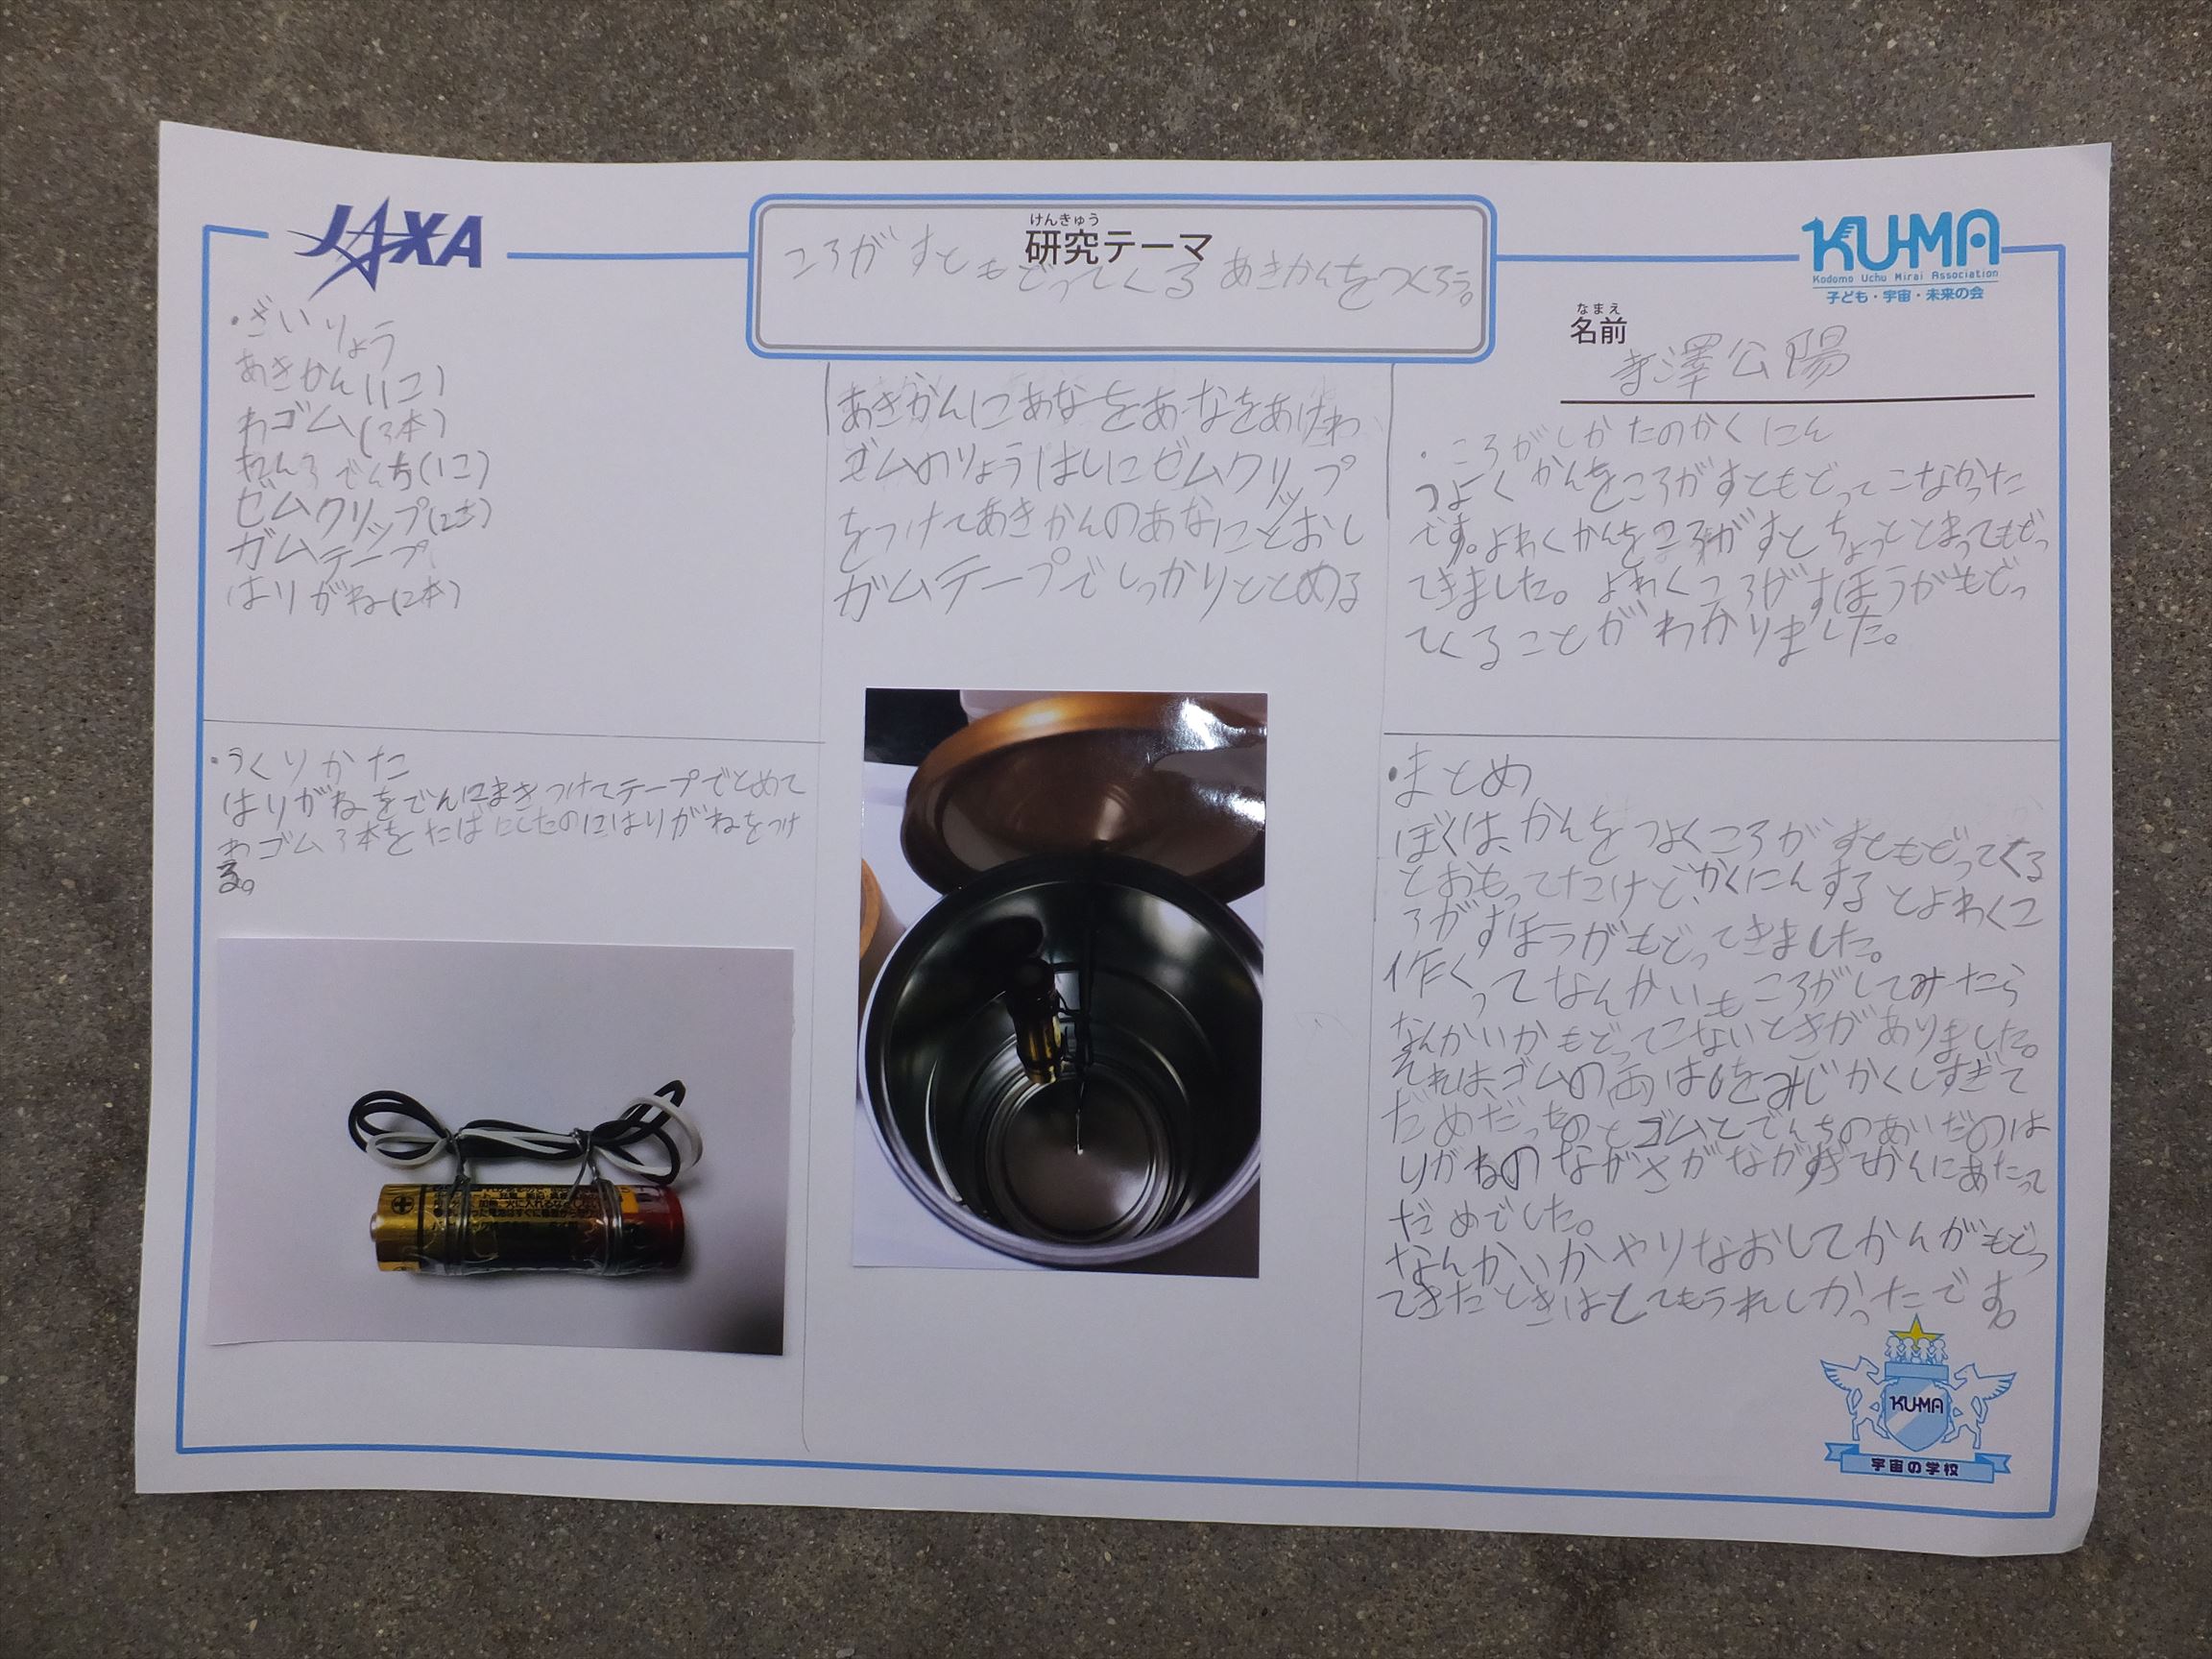 JAXA
けんきゅう
研究テーマ
ころがすともどってくるあきかんをつくろう。
KU-MA
Kodomo Uchu Mirai Association
子ども・宇宙・未来の会
なまえ
名前
寺澤公陽
・ざいりょう
あきかん(1こ)
わゴム(3本)
でんち(1こ)
ゼムクリップ(2本)
ガムテープ
はりがね(2本)
・つくりかた
はりがねをでんにまきつけてテープでとめて
わゴム3本をたばにしたのにはりがねをつけ
る。
あきかんにあなをあなをあけわ
ゴムのりょうはしにゼムクリップ
をつけてあきかんのあなにとおし
ガムテープでしっかりととめる
・ころがしかたのかくにん
つよくかんをころがすともどってこなかった
です。よわくかんをころがすとちょっととまってもどっ
てきました。よわくころがすほうがもどっ
てくることがわかりました。
・まとめ
ぼくは、かんをつよくころがすともどってくる
とおもってたけど、かくにんするとよわくこ
ろがすほうがもどってきました。
作くってなんかいもころがしてみたら
なんかいかもどってこないときがありました。
それは、ゴムのはしをみじかくしすぎて
だめだったのとゴムとでんちのあいだのは
りがねのながさがながすぎてかんにあたって
だめでした。
なんかいかやりなおしてかんがもどっ
てきたときはとてもうれしかったです。
KU-MA
宇宙の学校